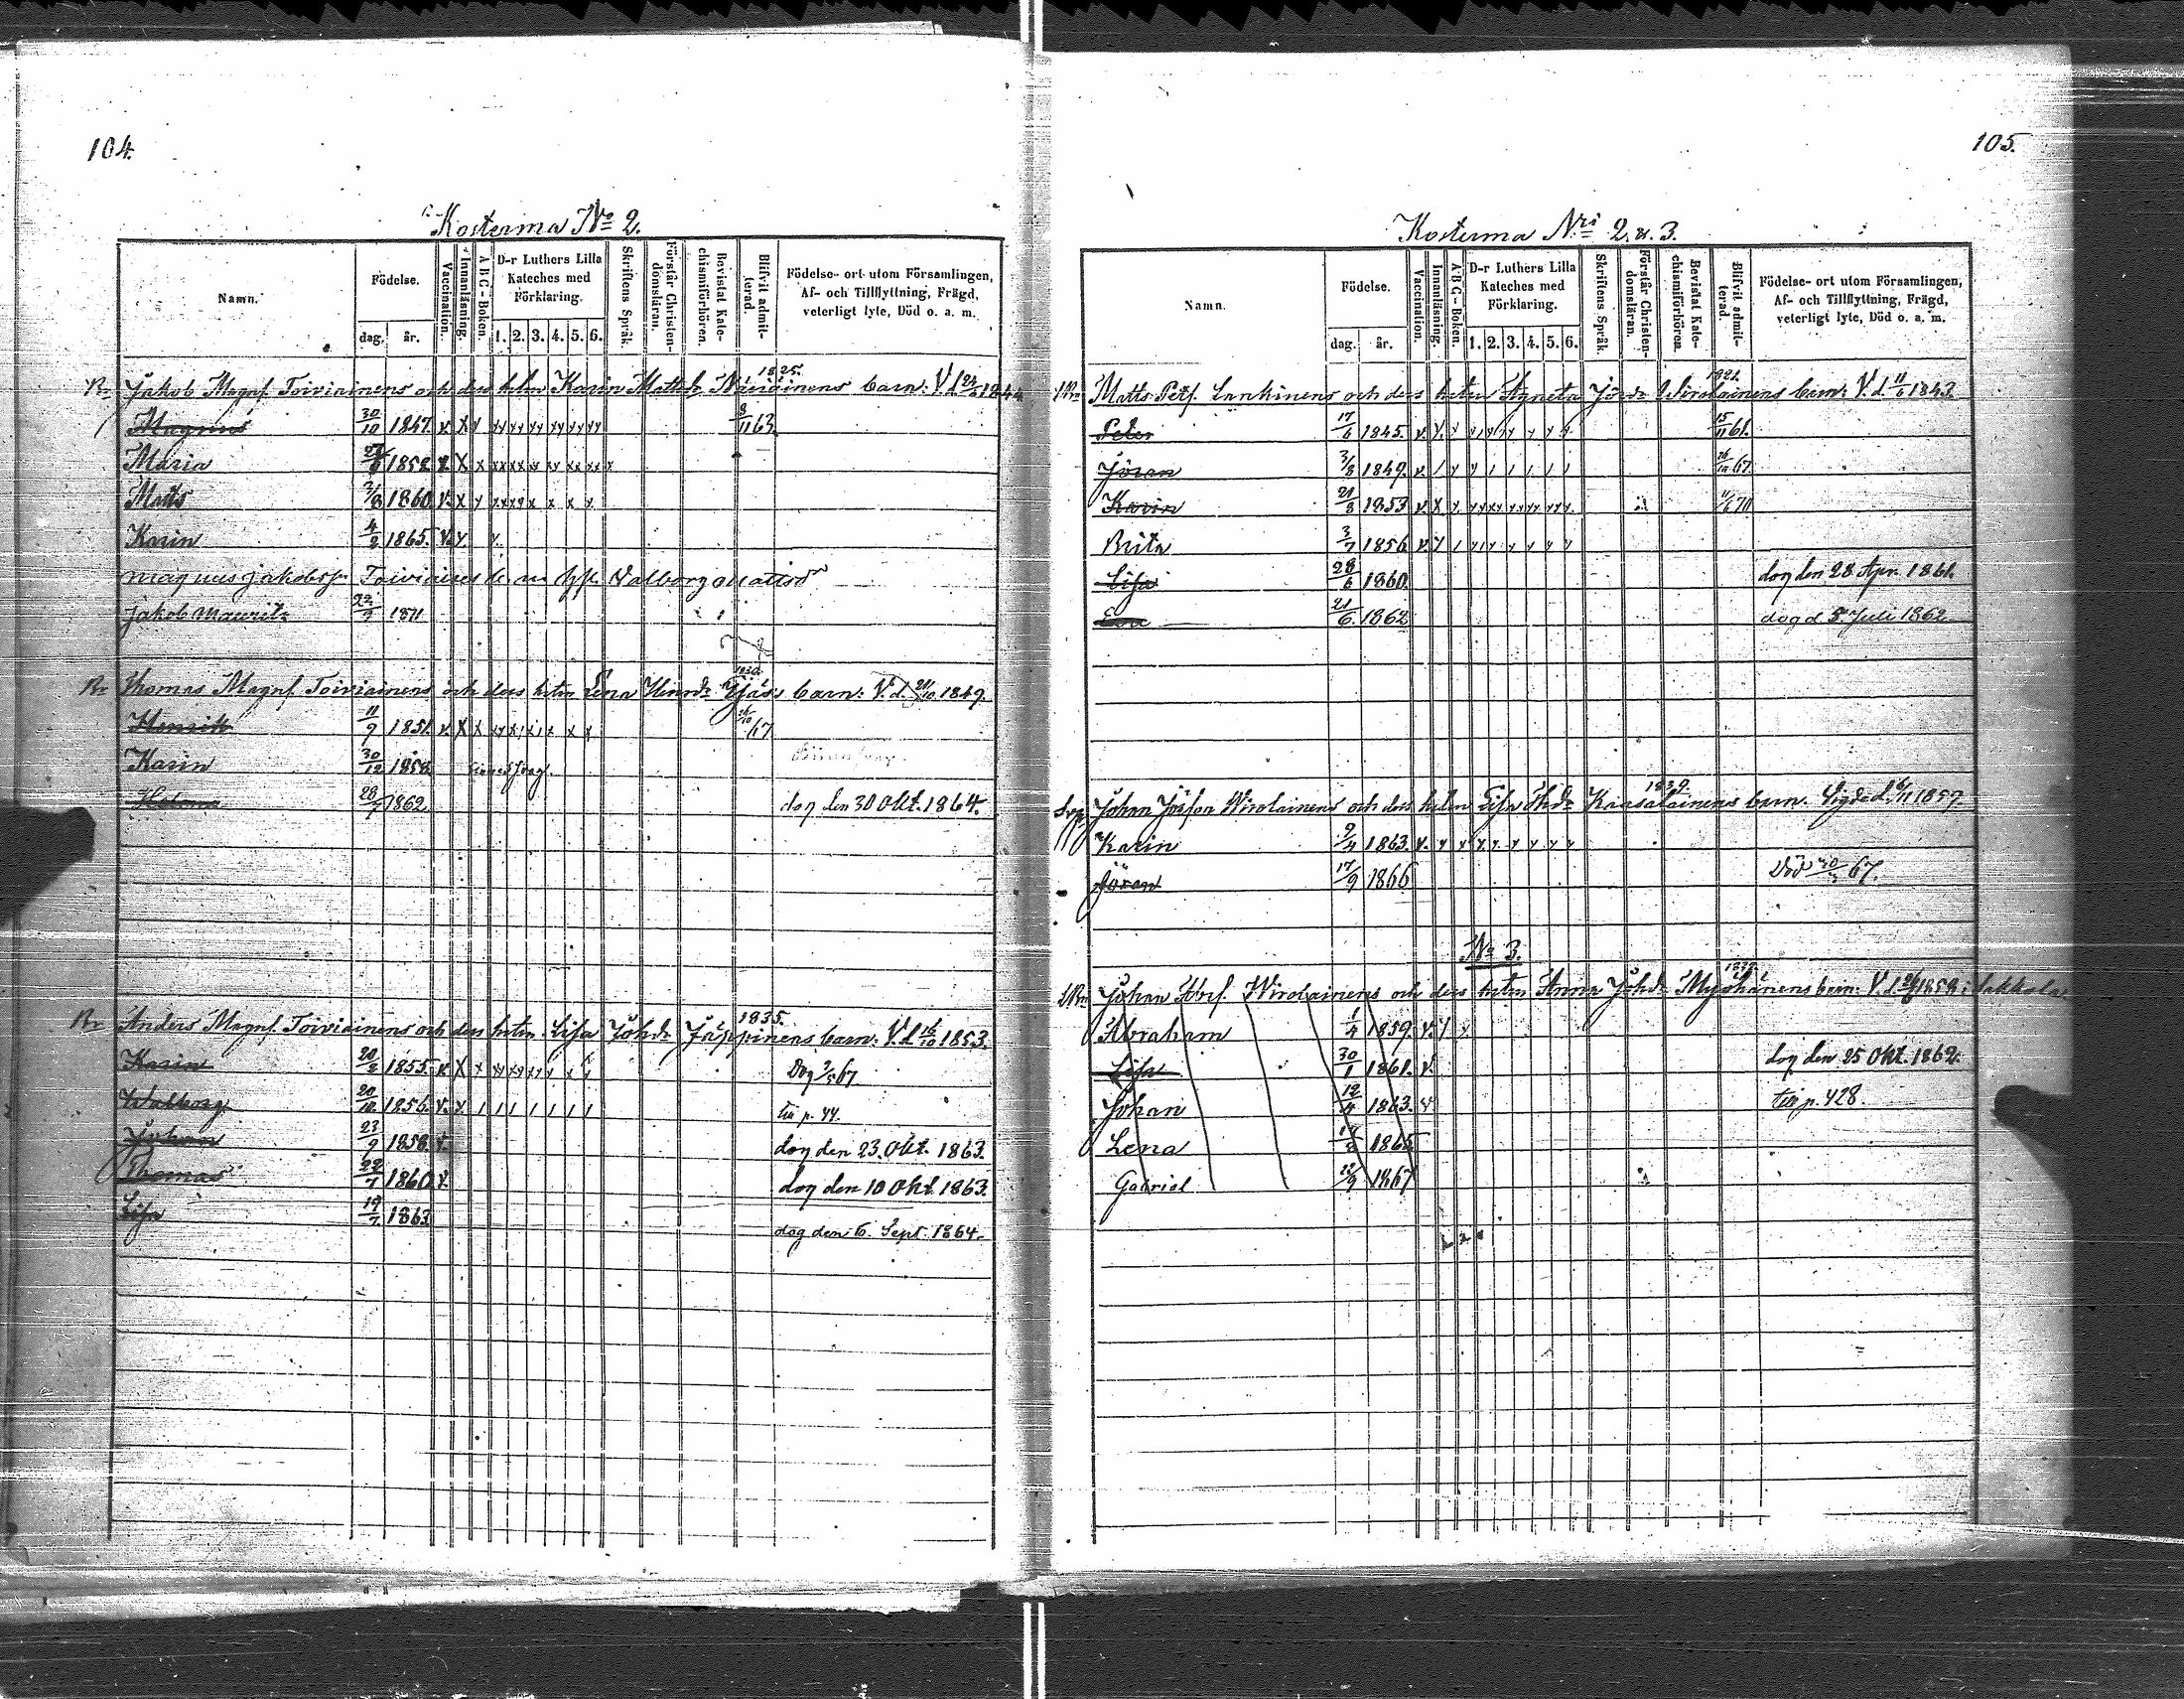 104.
Kosterma No 2.
Namn.
Födelse.
dag.
år.
Vaccination.
Innanläsning.
A B C - Boken.
D-r Luthers Lilla Kateches med Förklaring.
1. 2. 3. 4. 5. 6.
Skriftens Språk.
Förstår Christendomsläran.
Bevistat Katechismiförhören.
Blifvit admitterad.
Födelse- ort utom Församlingen, Af- och Tillflyttning, Frägd, veterligt lyte, Död o. a. m.
1825.
Jakob Magns. Toiviainens och dess hetm Karin Mattsd. barn: V. d. 1844
Magnus 30/10 1847. 8/11 63.
Maria 1858.
Matts 1860
Karin 4/2 1865.
Magnus Jakobsson Toiviainen Valborg Mattsdr
Jakob Mauritz 22/9 1871
1830.
Thomas Magns. Toiviainens och dess hetm Lena Henrd. barn: V. d. 21/10 1849.
Henrik 11/9 1851. 67
Karin 30/12 1858.
Helena 28/7 1862 dog den 30 Okt. 1864.
1835.
Anders Magns. Toiviainens och dess hetm. Lisa Johd. Jäppinens barn: V. d. 16/10 1853.
Karin 20/2 1855. Dog 67
Walborg 20/10 1856. Lia p. 44.
Johan 23/9 1858. dog den 23. Okt. 1863.
Thomas 22/7 1860 dog den 10 Okt. 1863.
Lisa 19/7 1863 dog den 6. Sept. 1864.
105.
Kosterma Nri 2. & 3.
Namn.
Födelse.
dag.
år.
Vaccination.
Innanläsning.
A B C - Boken.
D-r Luthers Lilla Kateches med Förklaring.
1. 2. 3. 4. 5. 6.
Skriftens Språk.
Förstår Christendomsläran.
Bevistat Katechismiförhören.
Blifvit admitterad.
Födelse- ort utom Församlingen, Af- och Tillflyttning, Frägd, veterligt lyte, Död o. a. m.
1821.
Matts Pers. Lankinens och dess hetm Agneta Jörd. Sirolainens barn: V. d. 11/6 1843.
Peter 17/6 1845. 15/11 61.
Jöran 3/8 1849. 26/10 67.
Karin 21/8 1853 11/6 70
Brita 3/7 1856
Lisa 28/6 1860. dog den 28 Apr. 1861.
Eva 21/6 1862 dog d. 5 Juli 1862
1839.
Johan Jöransson Wirolainens och dess hetm Lisa Thd. Kansalainens barn. Vigde d. 6/11 1859.
Karin 9/4 1863.
Jöran 17/9 1866 Död 67.
No 3.
Johan Abrs. Wirolainens och dess hetm Anna Johd. Myöhänens barn: V. d. 1858 i Sakkola
Abraham 1/4 1859.
Lisa 30/1 1861. dog den 25 Okt. 1862.
Johan 12/4 1863. Lia p. 428.
Lena 1865
Gabriel 22/9 1867